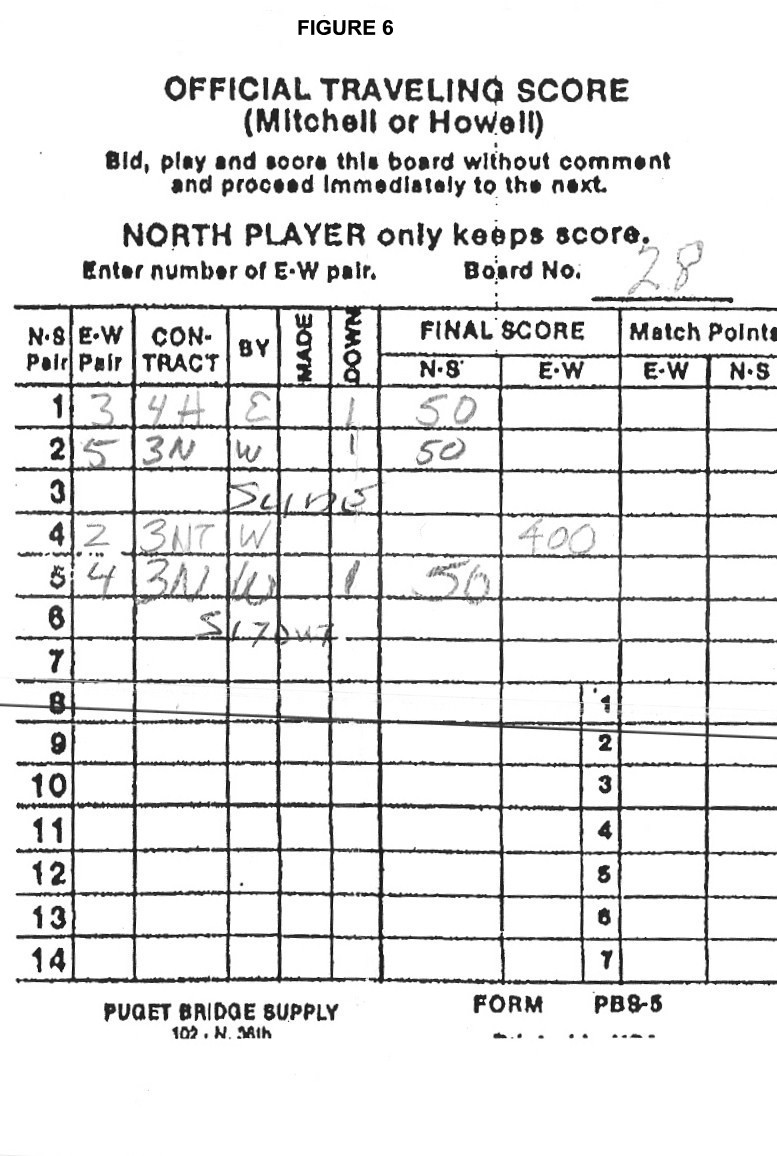 FIGURE 6
OFFICIAL TRAVELING SCORE
(Mitchell or Howell)
Bid, play and score this board without comment
and proceed immediately to the next.
NORTH PLAYER only keeps score.
Enter number of E-W pair. Board No. 28
N-S Pair E-W Pair CON-TRACT BY MADE DOWN FINAL SCORE Match Points
N-S E-W E-W N-S
1 3 4H E 1 50
2 5 3N W 1 50
3
4 2 3NT W 400
5 4 3N W 1 50
6 SITOUT
7
8 1
9 2
10 3
11 4
12 5
13 6
14 7
PUGET BRIDGE SUPPLY FORM PBS-5
102 N. 36th